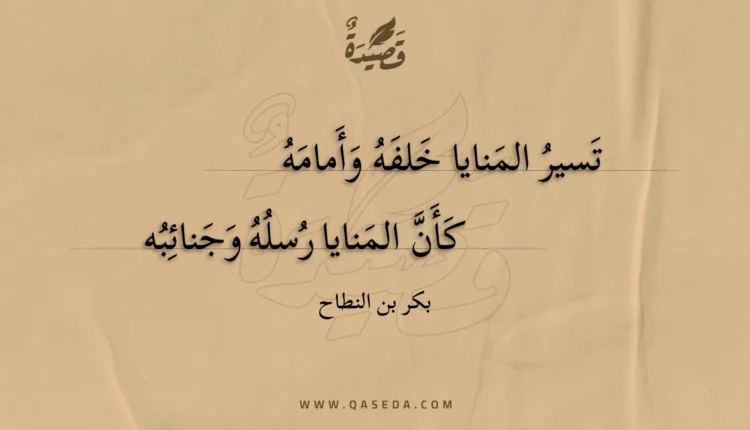 قَصِيدَةٌ
تَسيرُ المَنايا خَلفَهُ وَأَمامَهُ
كَأَنَّ المَنايا رُسلُهُ وَجَنائِبُه
بكر بن النطاح
WWW.QASEDA.COM